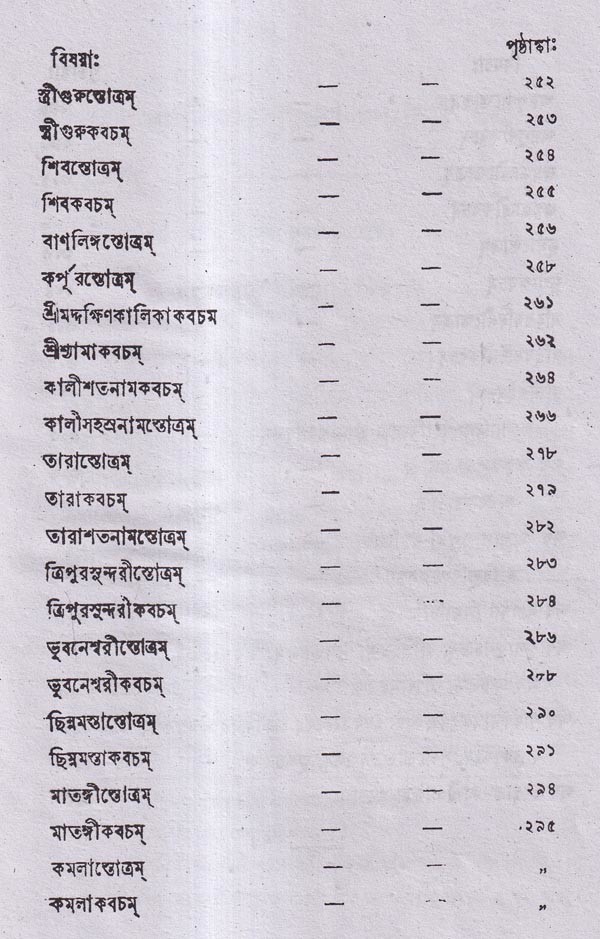 বিষয়াঃ পৃষ্ঠাঙ্কাঃ
স্ত্রীগুরুস্তোত্রম্ — — ২৫২
স্ত্রীগুরুকবচম্ — — ২৫৩
শিবস্তোত্রম্ — — ২৫৪
শিবকবচম্ — — ২৫৫
বাণলিঙ্গস্তোত্রম্ — — ২৫৬
কর্পূরস্তোত্রম্ — — ২৫৮
শ্রীমদ্দক্ষিণকালিকাকবচম — — ২৬১
শ্রীশ্যামাকবচম্ — — ২৬২
কালীশতনামকবচম্ — — ২৬৪
কালীসহস্রনামস্তোত্রম্ — — ২৬৬
তারাস্তোত্রম্ — — ২৭৮
তারাকবচম্ — — ২৭৯
তারাশতনামস্তোত্রম্ — — ২৮২
ত্রিপুরসুন্দরীস্তোত্রম্ — — ২৮৩
ত্রিপুরসুন্দরীকবচম্ — — ২৮৪
ভুবনেশ্বরীস্তোত্রম্ — — ২৮৬
ভুবনেশ্বরীকবচম্ — — ২৮৮
ছিন্নমস্তাস্তোত্রম্ — — ২৯০
ছিন্নমস্তাকবচম্ — — ২৯১
মাতঙ্গীস্তোত্রম্ — — ২৯৪
মাতঙ্গীকবচম্ — — ২৯৫
কমলাস্তোত্রম্ — — „
কমলাকবচম্ — — „